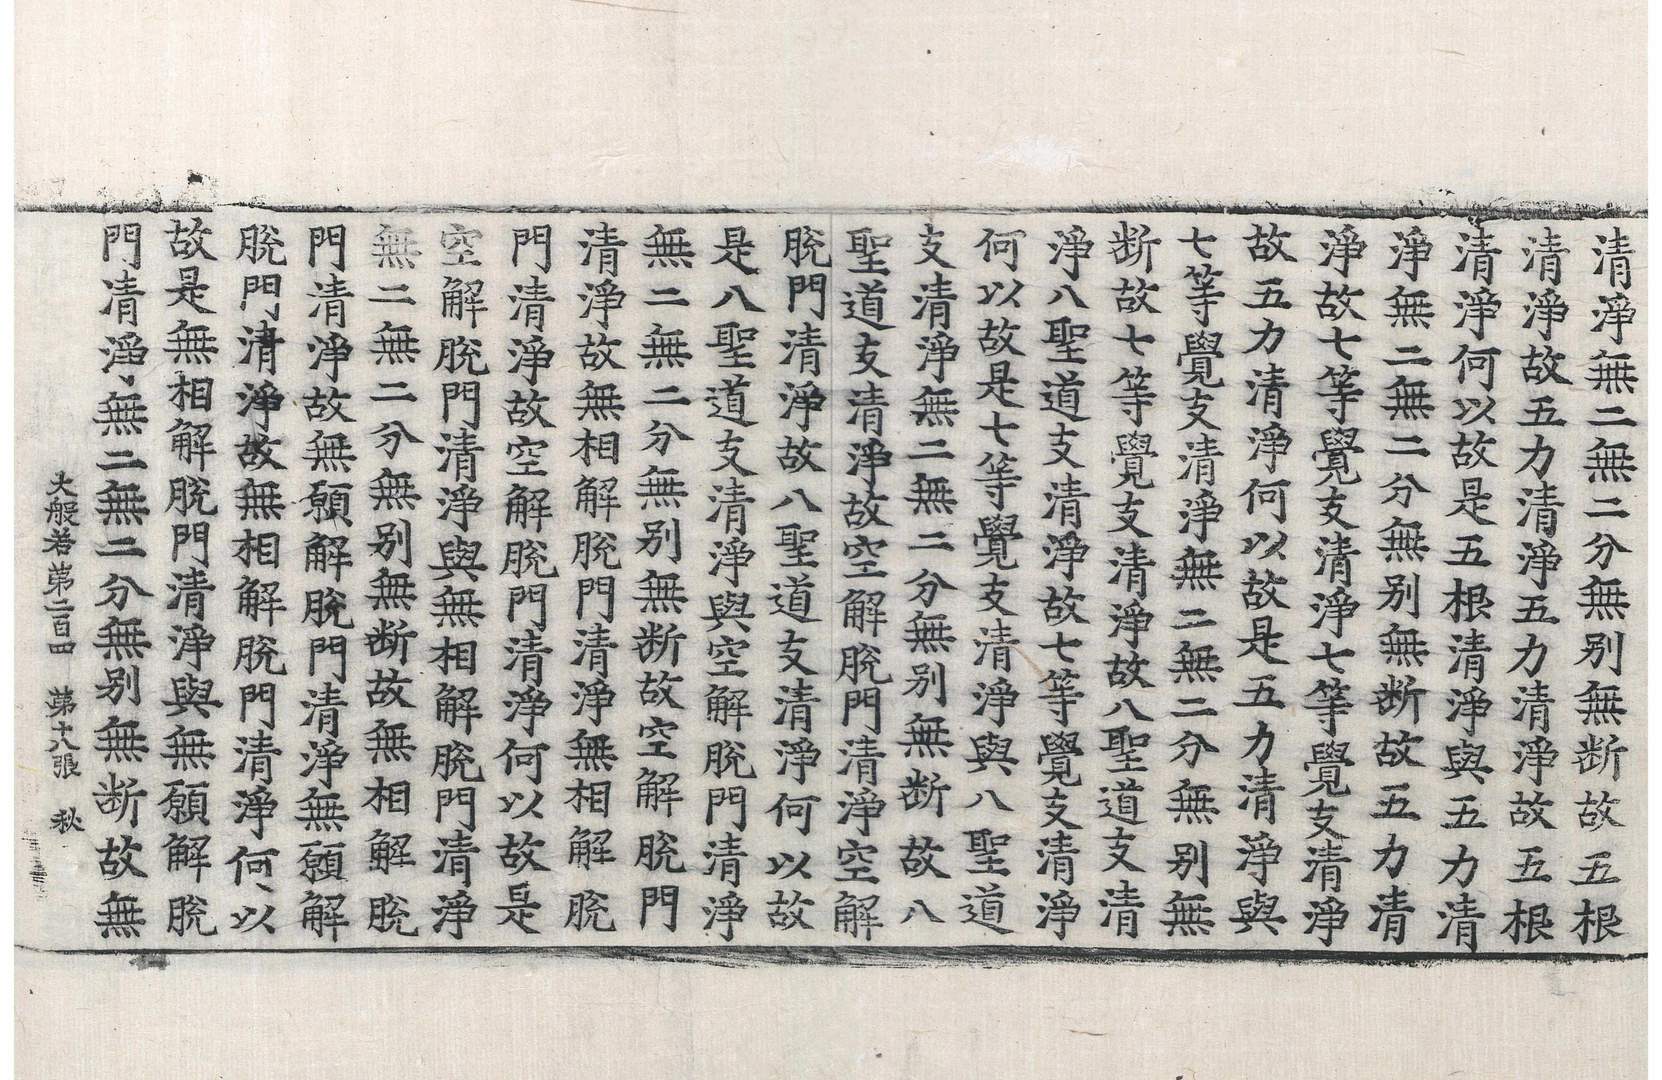 清淨無二無二分無別無断故五根
清淨故五力清淨五力清淨故五根
清淨何以故是五根清淨與五力清
淨無二無二分無別無断故五力清
淨故七等覺支清淨七等覺支清淨
故五力清淨何以故是五力清淨與
七等覺支清淨無二無二分無別無
断故七等覺支清淨故八聖道支清
淨八聖道支清淨故七等覺支清淨
何以故是七等覺支清淨與八聖道
支清淨無二無二分無別無断故八
聖道支清淨故空解脫門清淨空解
脫門清淨故八聖道支清淨何以故
是八聖道支清淨與空解脫門清淨
無二無二分無別無断故空解脫門
清淨故無相解脫門清淨無相解脫
門清淨故空解脫門清淨何以故是
空解脫門清淨與無相解脫門清淨
無二無二分無別無断故無相解脫
門清淨故無願解脫門清淨無願解
脫門清淨故無相解脫門清淨何以
故是無相解脫門清淨與無願解脫
門清淨無二無二分無別無断故無
大般若第二百四 第十八張 秋